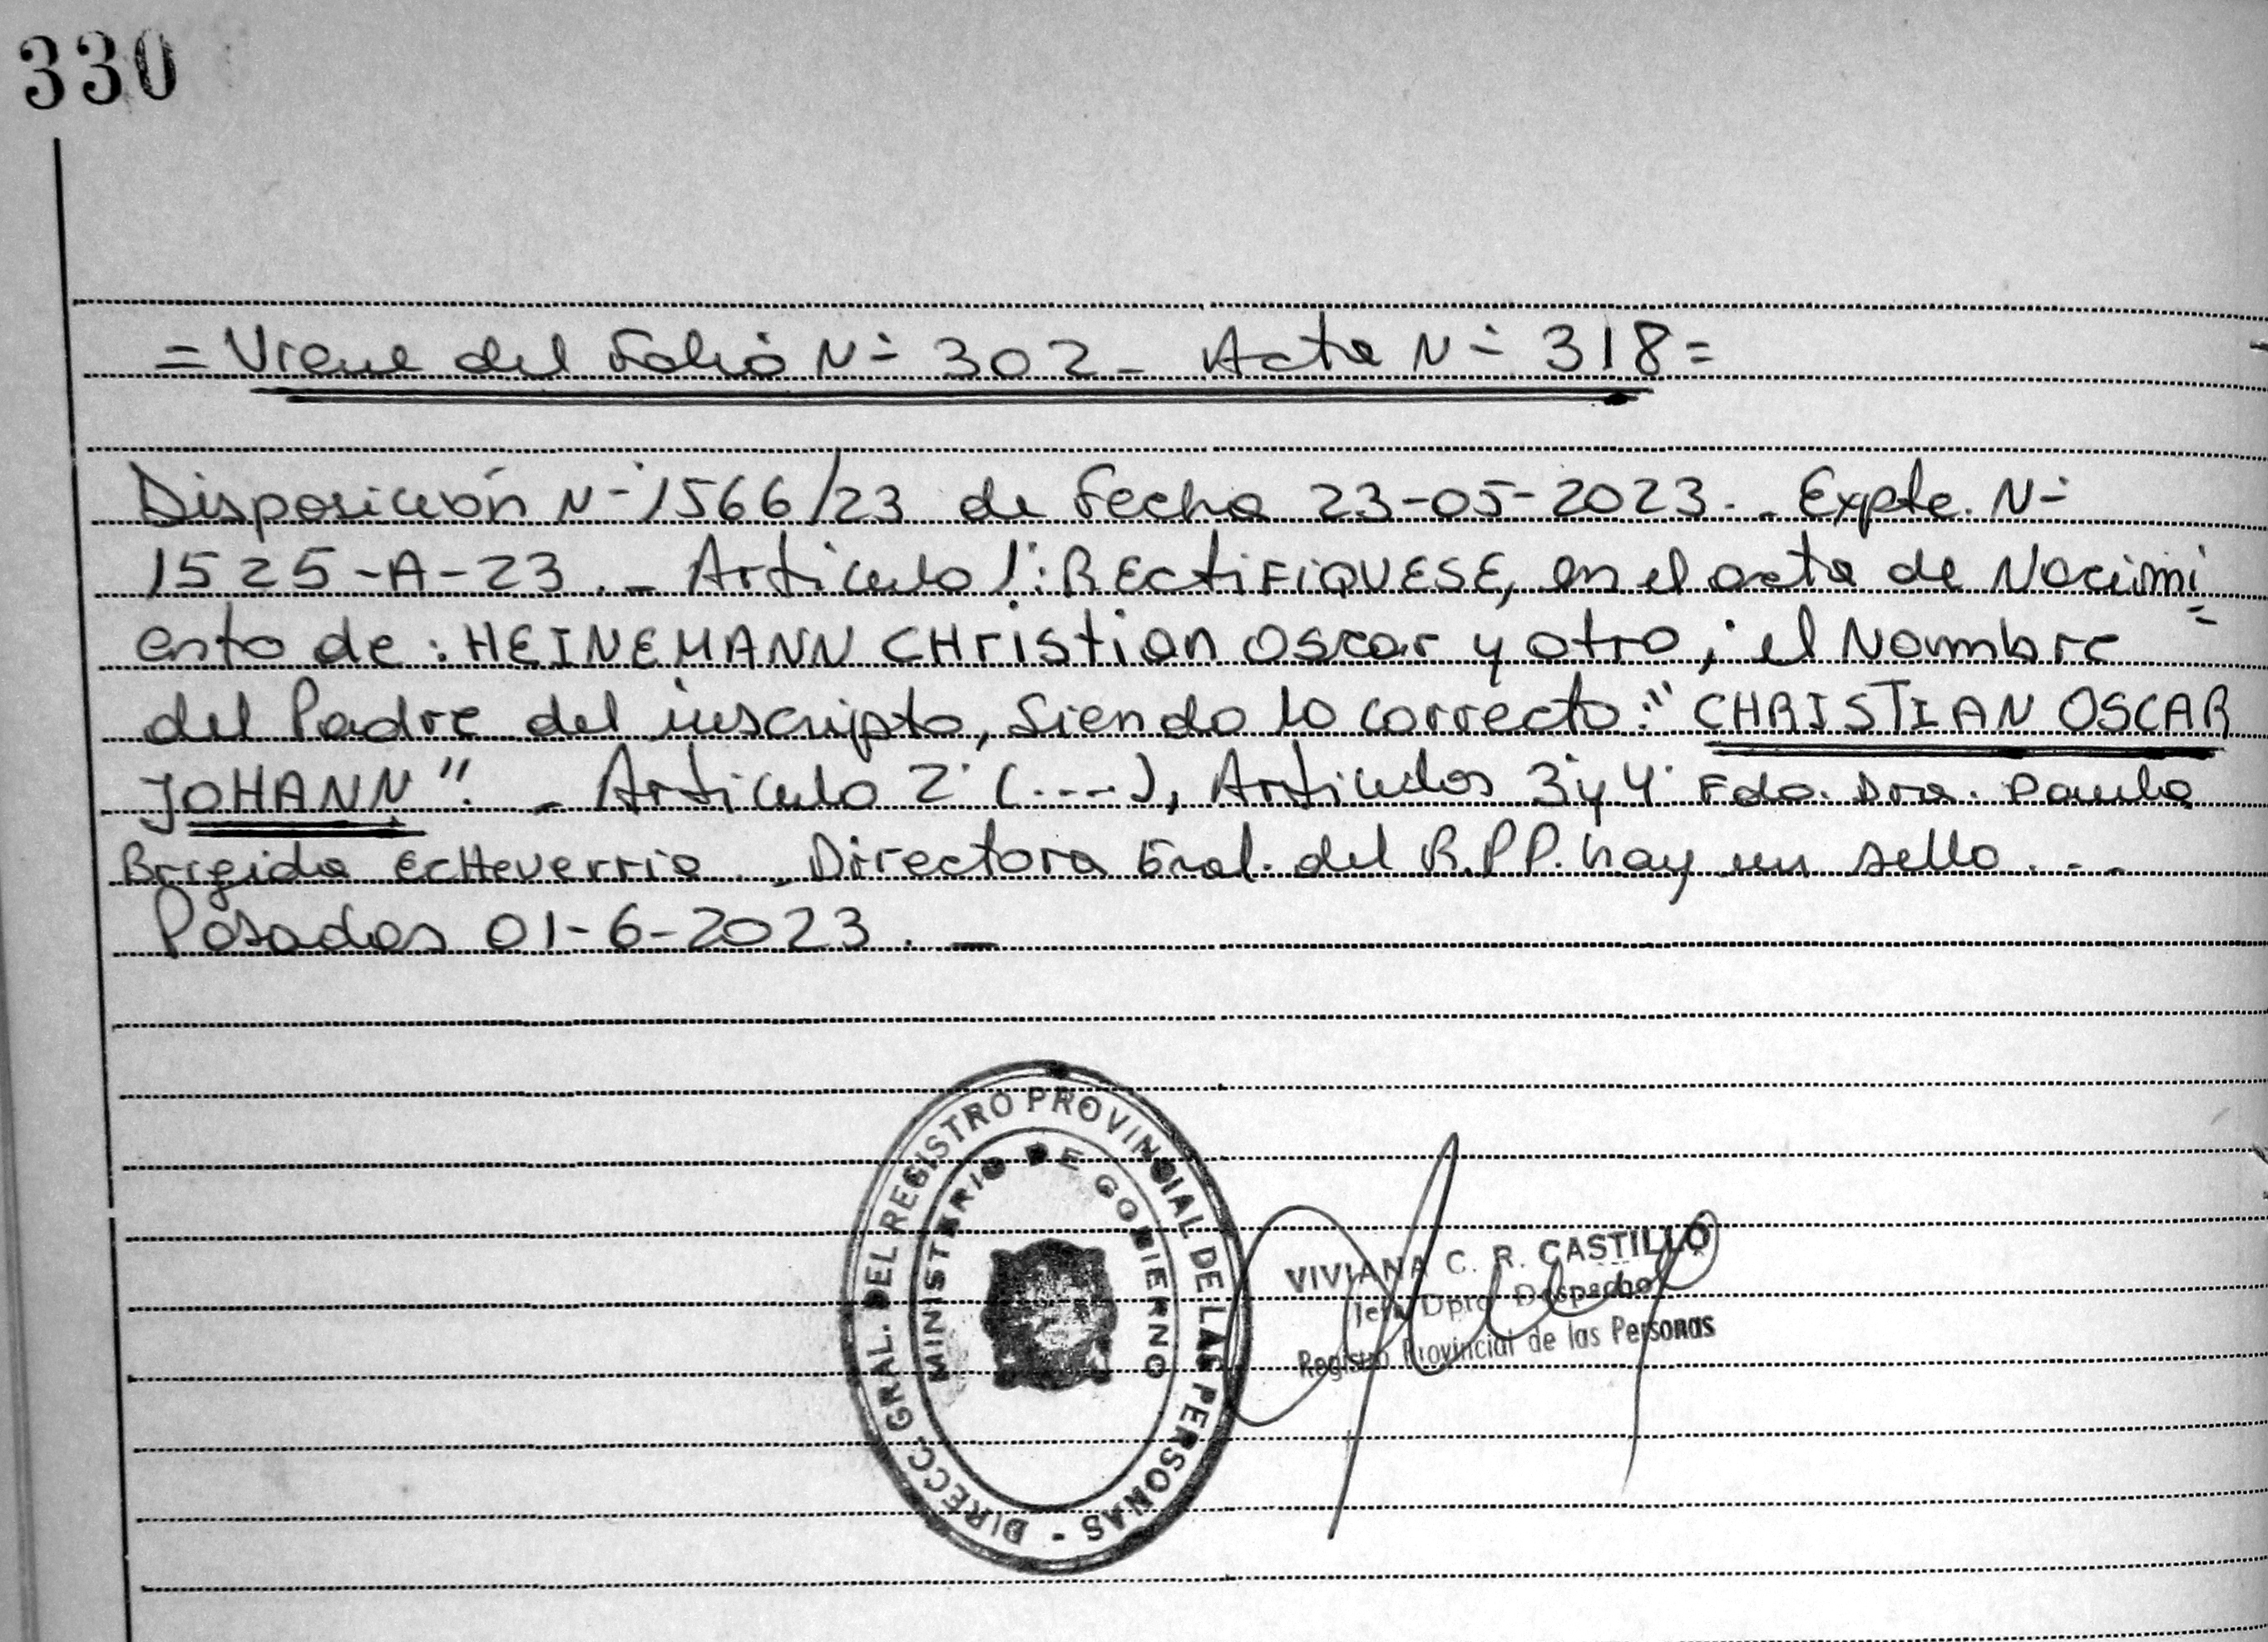 330
= Viene del Folio N° 302 - Acta N° 318 =
Disposición N° 1566/23 de Fecha 23-05-2023 - . Expte. N°
1525-A-23 . - Articulo 1°: RECtiFiQUESE, en el acta de Nacimi
ento de : HEINEMANN CHristian Oscar y otro, ; el Nombre
del Padre del inscripto, Siendo lo correcto: " CHRISTIAN OSCAR
JOHANN". - Articulo 2° (----), Articulos 3° y 4° Fdo. Dra. Paula
Brigida EcHeverria - Directora Gral. del R.P.P. hay un sello . - -
Posadas 01-6-2023 . -
DIRECC. GRAL. DEL REGISTRO PROVINCIAL DE LAS PERSONAS -
MINISTERIO DE GOBIERNO
VIVIANA C. R. CASTILLO
Jefa Dpto. Despacho
Registro Provincial de las Personas